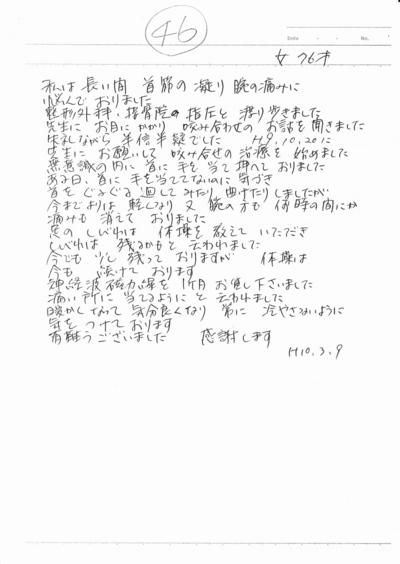 46
Date No.
女 76才
私は 長い間 首筋の凝り 腕の痛みに
悩んで おりました
整形外科、接骨院の 指圧と 渡り歩きました
先生に お目にかかり 咬み合わせの お話を聞きました
失礼ながら 半信半疑でした H9.10.20に
先生に お願いして 咬み合せの 治療を 始めました
無意識の内に 首に 手を 当て 押へて おりました
ある日、首に 手を 当ててないのに 気づき
首を ぐるぐる 廻して みたり 曲げたりしましたが
今までよりは 軽くなり 又 腕の方も 何時の間にか
痛みも 消えて おりました
足の しびれは 体操を 教えて いただき
しびれは 残るかもと 云われました
今でも 少し 残って おりますが 体操は
今も 続けて おります
神経波磁力線を 1ヶ月 お貸し下さいました
痛い所に 当てるようにと 云われました
暖かくなって 気分良くなり 常に 冷やさないように
気を つけて おります
有難うございました 感謝します
H10.3.9